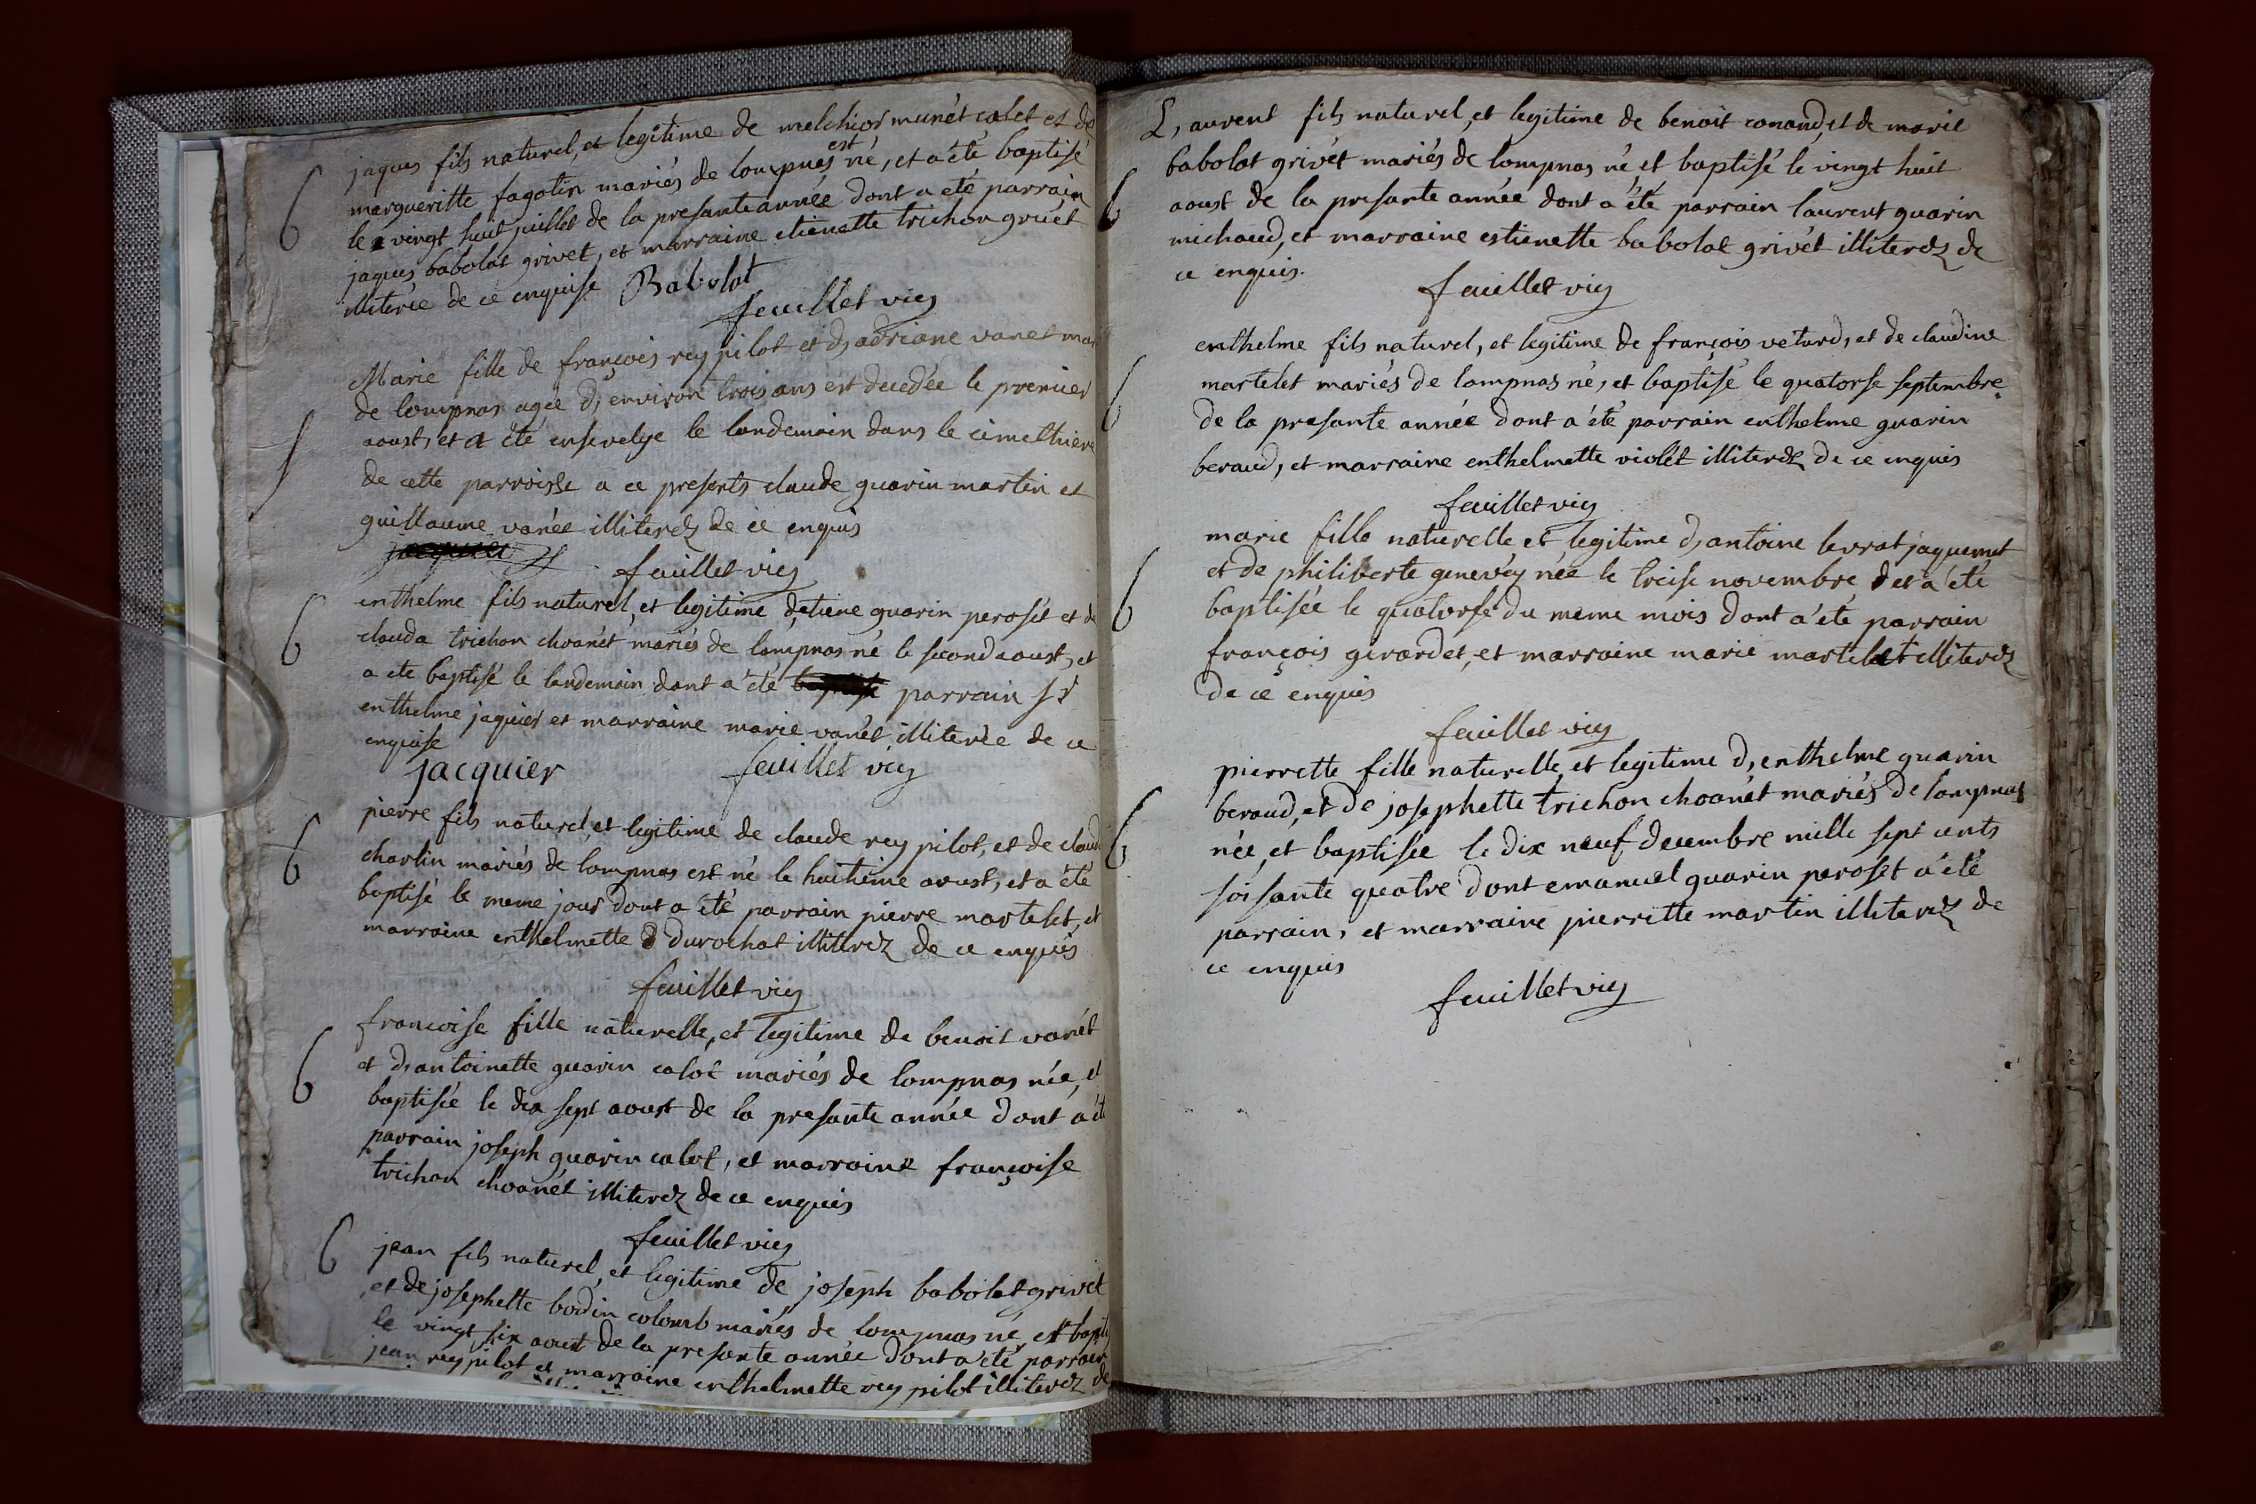 jaques fils naturel, et legitime de melchior munét calet et de
margueritte fagotin mariés de lompnas est né, et a été baptisé
le vingt huit juillet de la presante année dont a eté parrain
jaques babolat grivet, et marraine etienette trichon gruét
illiterée de ce enquise Babolat
feuillet vic
6
Marie fille de françois rey pilot et d, adriane vanet mar
de lompnas agée d, environ trois ans est decedée le premier
aoust, et a été ensevelye le landemain dans le cimethiere
de cette parroisse a ce presents claude guarin martin et
guillaume vanét illiterez de ce enquis
jacquier
feuillet vic
6
enthelme fils naturel, et legitime d, etiene guarin perosét et de
clauda trichon choanét mariés de lompnas né le second aoust, et
a eté baptisé le landemain dont a été baptisé parrain sr
enthelme jaquier et marraine marie vanét illiterée de ce
enquise
jacquier feuillet vic
6
pierre fils naturel, et legitime de claude rey pilot, et de claud
charlin mariés de lompnas est né le huitieme aoust, et a été
baptisé le meme jour dont a été parrain pierre martelet, et
marraine enthelmette durochat illiterez de ce enquis
feuillet vic
6
francoise fille naturelle, et legitime de benoit vanét
et d, antoinette guarin calot mariés de lompnas née, et
baptisée le dix sept aoust de la presante année dont a été
parrain joseph guarin calot, et marraine françoise
trichon choanét illiterez de ce enquis
feuillet vic
6
jean fils naturel, et legitime de joseph babolat grivét
et de josephette bodin colomb mariés de lompnas né, et bapti
le vingt six aoust de la presante année dont a été parrain
jean rey pilot et marraine enthelmette rey pilot illiterez de
L, aurent fils naturel, et legitime de benoit conand, et de marie
babolat grivét mariés de lompnas né et baptisé le vingt huit
6
aoust de la presante année dont a été parrain laurent guarin
michaud, et marraine estienette babolat grivét illiterez de
ce enquis.
feuillet vic
enthelme fils naturel, et legitime de françois vetard, et de claudine
6
martelet mariés de lompnas né, et baptisé le quatorse septembre
de la presante année dont a été parrain enthelme guarin
beraud, et marraine enthelmette violét illiterez de ce enquis
feuillet vic
marie fille naturelle et legitime d, antoine levrat jaquemet
et de philiberte genevéy née le treise novembre et a été
6
baptisée le quatorse du meme mois dont a été parrain
françois girardet, et marraine marie martelet illiterez
de ce enquis
feuillet vic
pierrette fille naturelle, et legitime d, enthelme guarin
beraud, et de josephette trichon choanét mariés de lompnas
6
née, et baptisée le dix neuf decembre mille sept cents
soisante quatre dont emanuel guarin peroset a été
parrain, et marraine pierrette martin illiterez de
ce enquis
feuillet vic